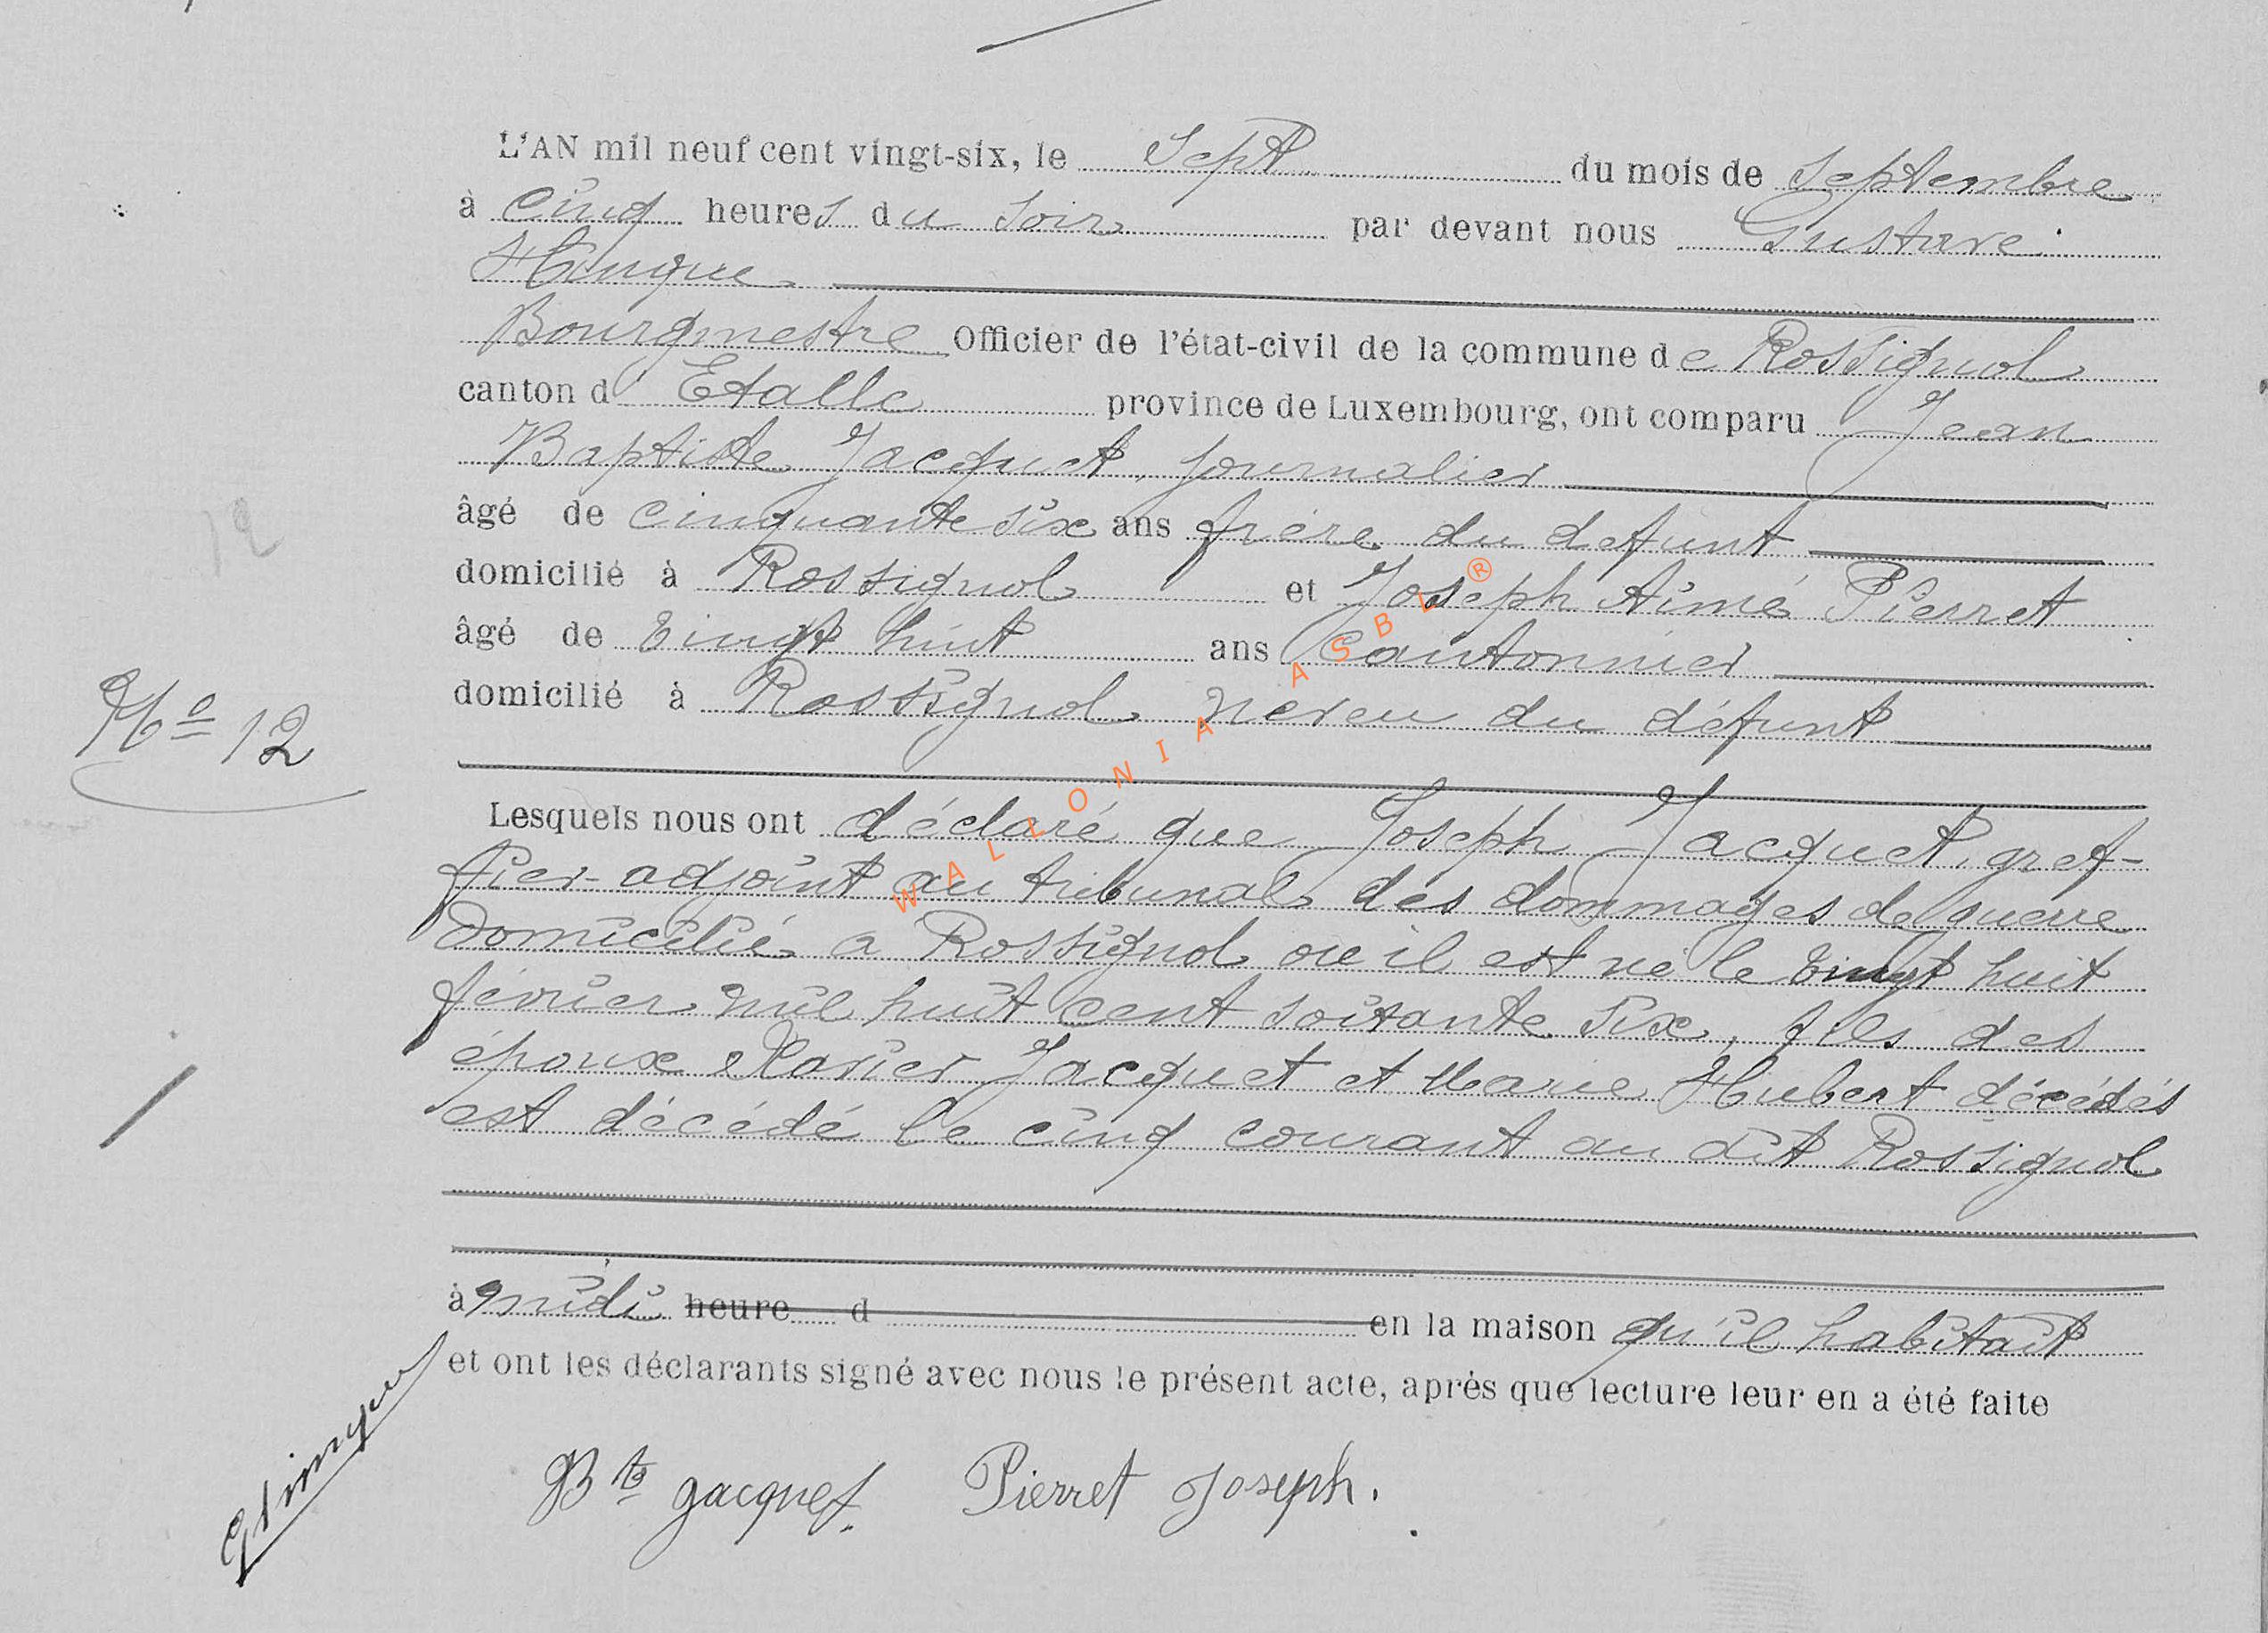 L'AN mil neuf cent vingt-six, le sept du mois de septembre
à cinq heures du soir par devant nous Gustave
Hinque
Bourgmestre Officier de l'état-civil de la commune de Rossignol
canton d'Etalle province de Luxembourg, ont comparu Jean
Baptiste Jacquet, journalier
âgé de cinquante six ans frère du defunt
domicilié à Rossignol et Joseph Aimé Pierret
âgé de vingt huit ans cantonnier
domicilié à Rossignol neveu du défunt
12
No 12
Lesquels nous ont déclaré que Joseph Jacquet, gref-
fier-adjoint au tribunal des dommages de guerre
domicilié a Rossignol ou il est né le vingt huit
février mil huit cent soixante six, fils des
époux Xavier Jacquet et Marie Hubert décédés
est décédé le cinq courant au dit Rossignol
à midi heure d en la maison qu'il habitait
et ont les déclarants signé avec nous le présent acte, après que lecture leur en a été faite
Bte Jacquet. Pierret Joseph.
GHinque
WALLONIA ASBL ®